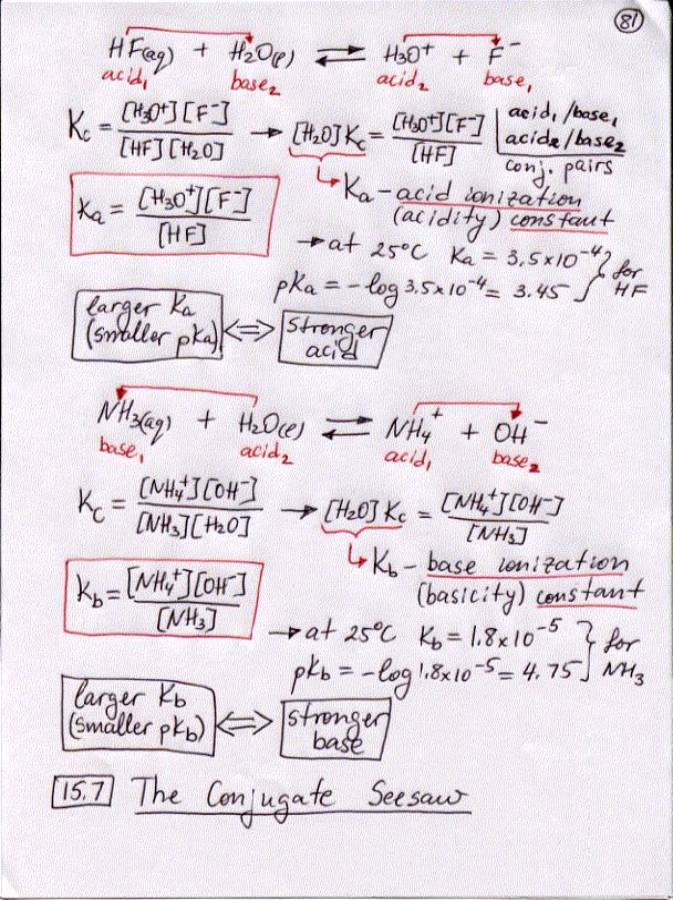 81
HF(aq) + H₂O(l) ⇌ H₃O⁺ + F⁻
acid₁ base₂ acid₂ base₁
Kc = [H₃O⁺][F⁻] / [HF][H₂O] → [H₂O]Kc = [H₃O⁺][F⁻] / [HF]
acid₁/base₁
acid₂/base₂
conj. pairs
Ka = [H₃O⁺][F⁻] / [HF]
Ka - acid ionization
(acidity) constant
→ at 25°C Ka = 3.5×10⁻⁴ } for
pKa = -log 3.5×10⁻⁴ = 3.45 } HF
larger Ka
(smaller pKa) ⟺ stronger
acid
NH₃(aq) + H₂O(l) ⇌ NH₄⁺ + OH⁻
base₁ acid₂ acid₁ base₂
Kc = [NH₄⁺][OH⁻] / [NH₃][H₂O] → [H₂O]Kc = [NH₄⁺][OH⁻] / [NH₃]
Kb - base ionization
(basicity) constant
Kb = [NH₄⁺][OH⁻] / [NH₃]
→ at 25°C Kb = 1.8×10⁻⁵ } for
pKb = -log 1.8×10⁻⁵ = 4.75 } NH₃
larger Kb
(smaller pKb) ⟺ stronger
base
15.7 The Conjugate Seesaw